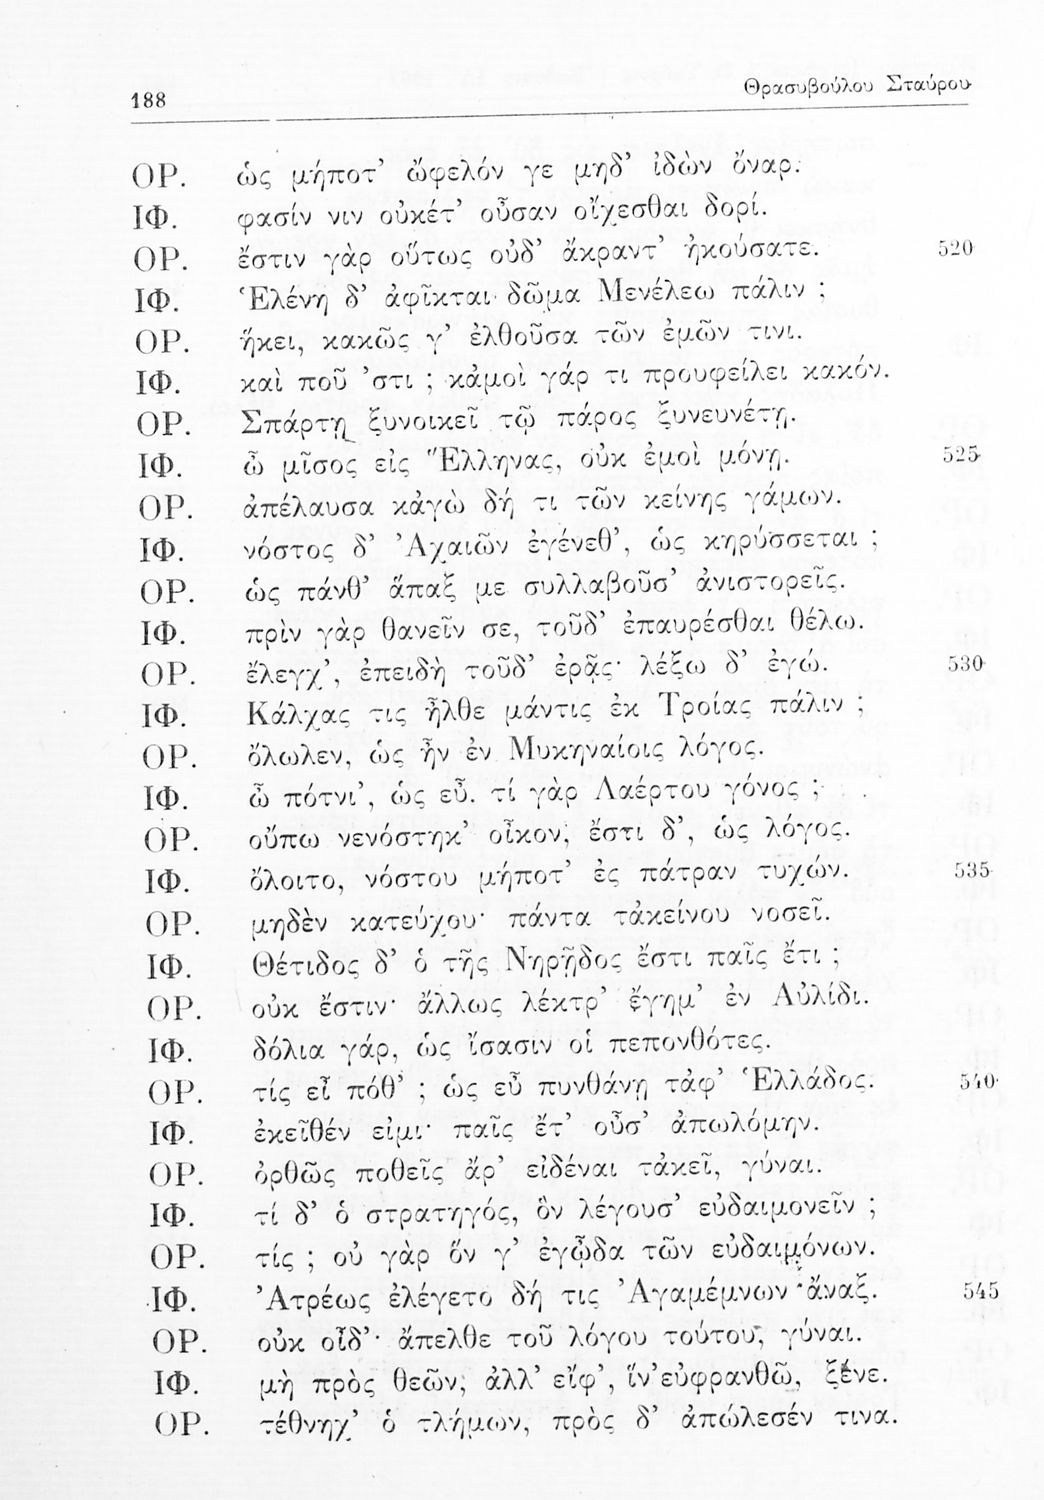 188 Θρασυβούλου Σταύρου
ΟΡ. ὡς μήποτ’ ὤφελόν γε μηδ’ ἰδὼν ὄναρ.
ΙΦ. φασίν νιν οὐκέτ’ οὖσαν οἴχεσθαι δορί.
ΟΡ. ἔστιν γὰρ οὕτως οὐδ’ ἄκραντ’ ἠκούσατε. 520
ΙΦ. Ἑλένη δ’ ἀφῖκται δῶμα Μενέλεω πάλιν ;
ΟΡ. ἥκει, κακῶς γ’ ἐλθοῦσα τῶν ἐμῶν τινι.
ΙΦ. καὶ ποῦ ’στι ; κἀμοὶ γάρ τι προυφείλει κακόν.
ΟΡ. Σπάρτῃ ξυνοικεῖ τῷ πάρος ξυνευνέτῃ.
ΙΦ. ὦ μῖσος εἰς Ἕλληνας, οὐκ ἐμοὶ μόνῃ. 525
ΟΡ. ἀπέλαυσα κἀγὼ δή τι τῶν κείνης γάμων.
ΙΦ. νόστος δ’ Ἀχαιῶν ἐγένεθ’, ὡς κηρύσσεται ;
ΟΡ. ὡς πάνθ’ ἅπαξ με συλλαβοῦσ’ ἀνιστορεῖς.
ΙΦ. πρὶν γὰρ θανεῖν σε, τοῦδ’ ἐπαυρέσθαι θέλω.
ΟΡ. ἔλεγχ’, ἐπειδὴ τοῦδ’ ἐρᾷς· λέξω δ’ ἐγώ. 530
ΙΦ. Κάλχας τις ἦλθε μάντις ἐκ Τροίας πάλιν ;
ΟΡ. ὄλωλεν, ὡς ἦν ἐν Μυκηναίοις λόγος.
ΙΦ. ὦ πότνι’, ὡς εὖ. τί γὰρ Λαέρτου γόνος ;
ΟΡ. οὔπω νενόστηκ’ οἶκον, ἔστι δ’, ὡς λόγος.
ΙΦ. ὄλοιτο, νόστου μήποτ’ ἐς πάτραν τυχών. 535
ΟΡ. μηδὲν κατεύχου· πάντα τἀκείνου νοσεῖ.
ΙΦ. Θέτιδος δ’ ὁ τῆς Νηρῇδος ἔστι παῖς ἔτι ;
ΟΡ. οὐκ ἔστιν· ἄλλως λέκτρ’ ἔγημ’ ἐν Αὐλίδι.
ΙΦ. δόλια γάρ, ὡς ἴσασιν οἱ πεπονθότες.
ΟΡ. τίς εἶ πόθ’ ; ὡς εὖ πυνθάνῃ τἀφ’ Ἑλλάδος. 540
ΙΦ. ἐκεῖθέν εἰμι· παῖς ἔτ’ οὖσ’ ἀπωλόμην.
ΟΡ. ὀρθῶς ποθεῖς ἄρ’ εἰδέναι τἀκεῖ, γύναι.
ΙΦ. τί δ’ ὁ στρατηγός, ὃν λέγουσ’ εὐδαιμονεῖν ;
ΟΡ. τίς ; οὐ γὰρ ὅν γ’ ἐγᾦδα τῶν εὐδαιμόνων.
ΙΦ. Ἀτρέως ἐλέγετο δή τις Ἀγαμέμνων ἄναξ. 545
ΟΡ. οὐκ οἶδ’· ἄπελθε τοῦ λόγου τούτου, γύναι.
ΙΦ. μὴ πρὸς θεῶν, ἀλλ’ εἴφ’, ἵν’ εὐφρανθῶ, ξένε.
ΟΡ. τέθνηχ’ ὁ τλήμων, πρὸς δ’ ἀπώλεσέν τινα.